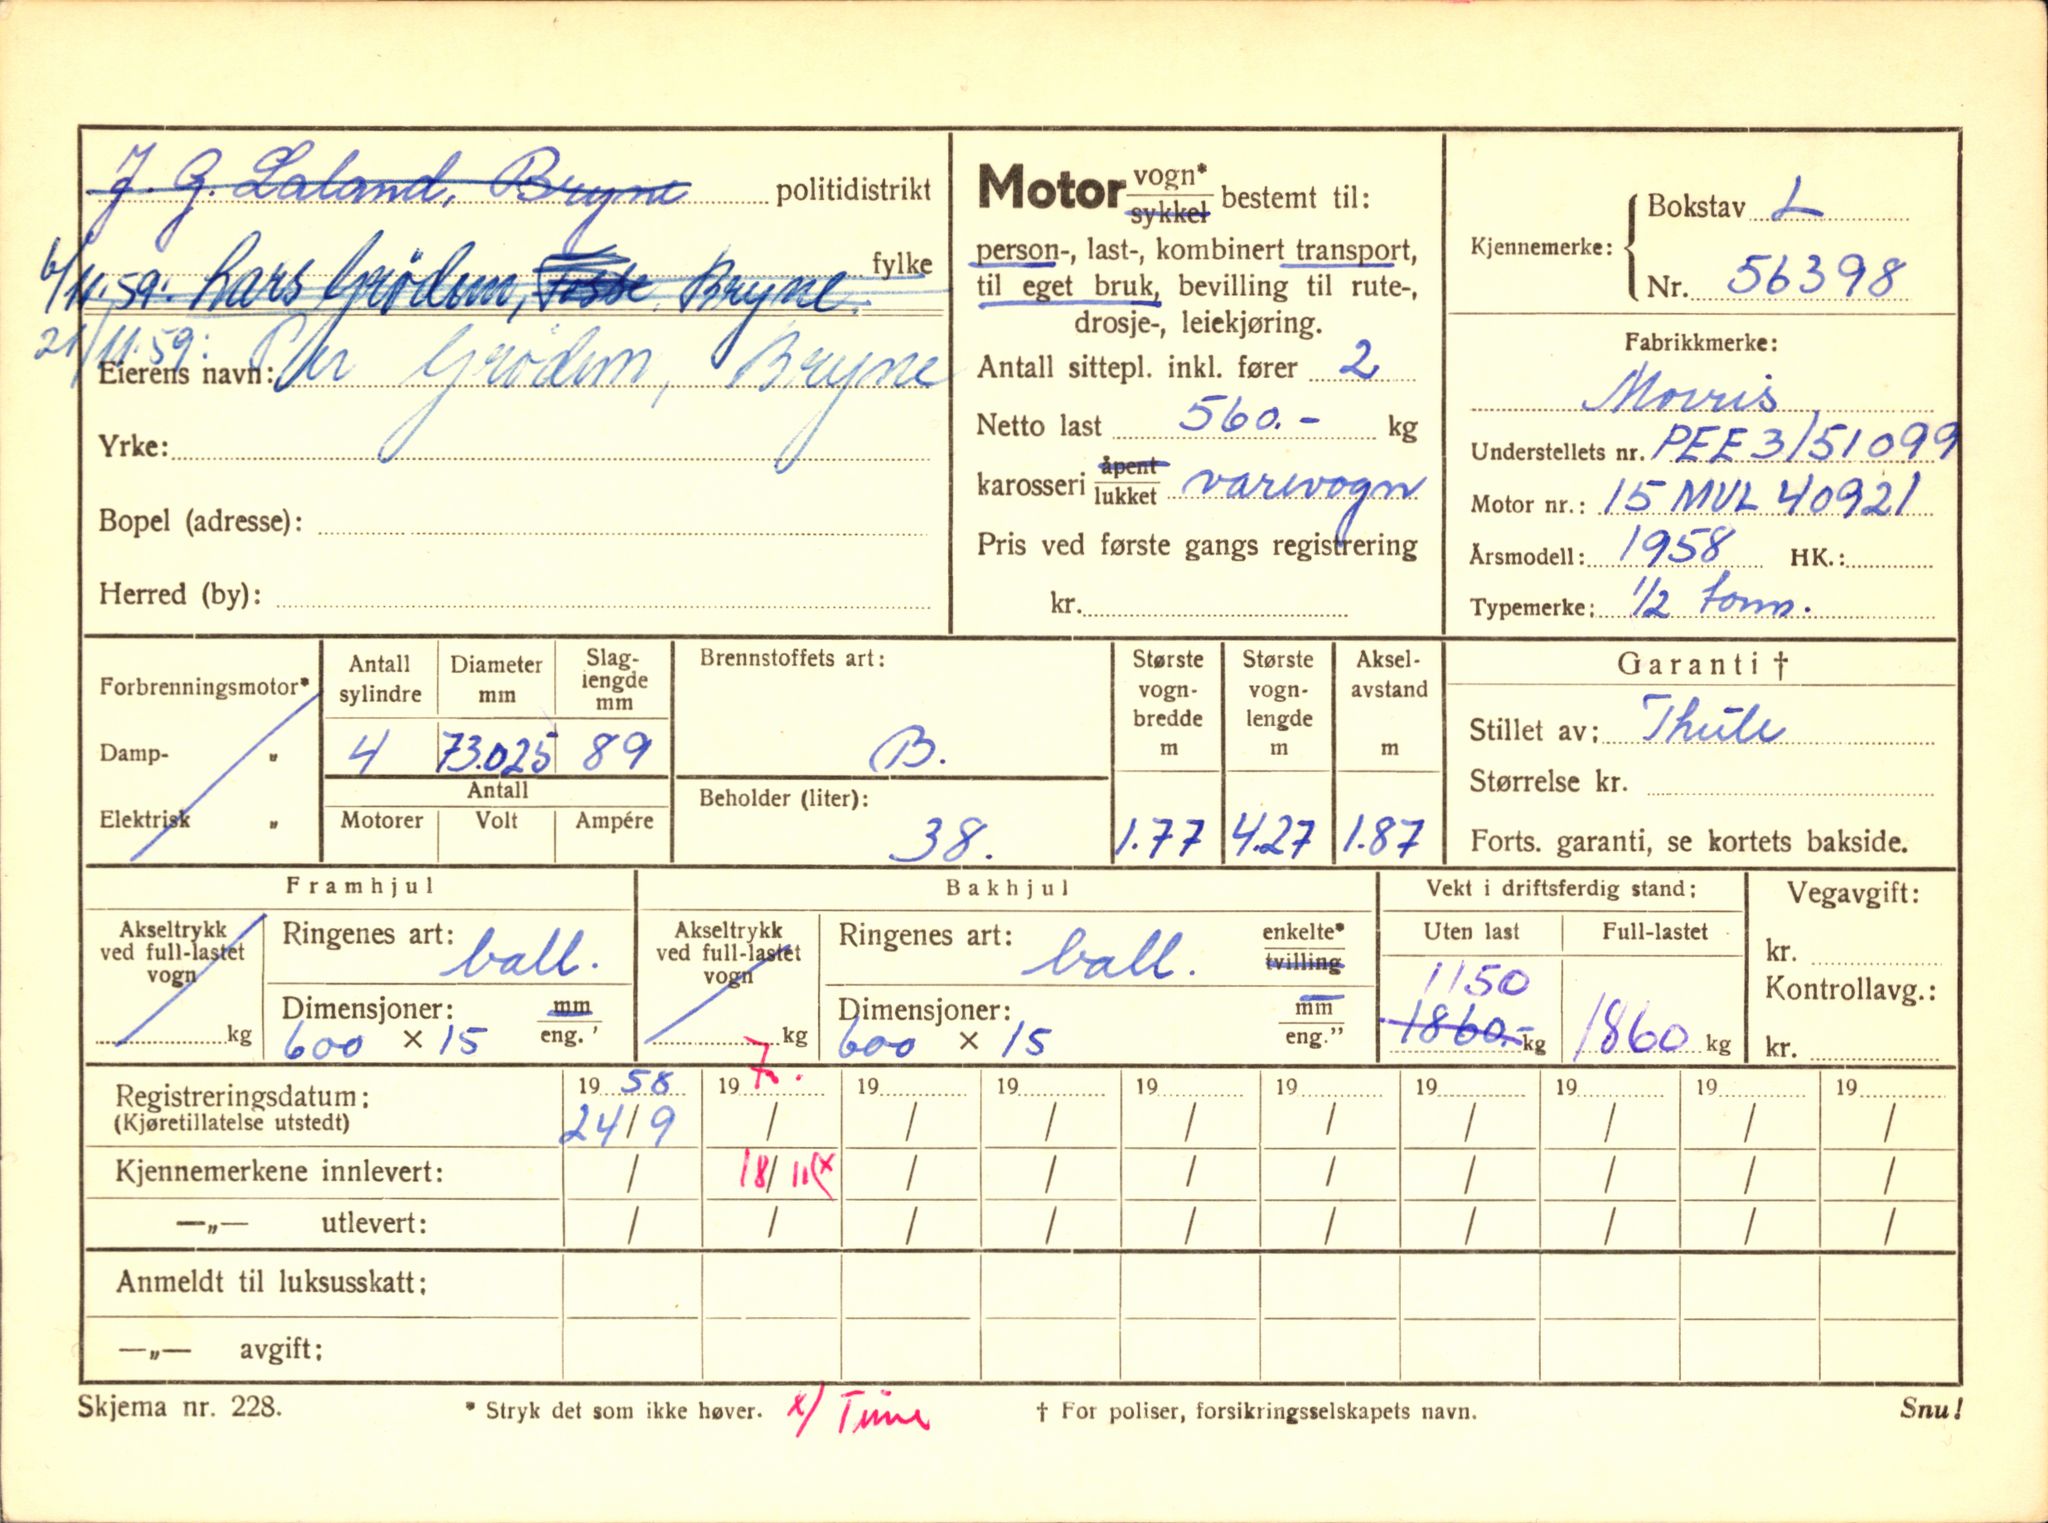 J. G. Laland, Bryne politidistrikt
6/11.59: Lars Grødem, Fosse, Bryne. fylke
21/11.59: Per Grødem, Bryne
Eierens navn:
Yrke:
Bopel (adresse):
Herred (by):
Motor vogn* sykkel bestemt til:
person-, last-, kombinert transport,
til eget bruk, bevilling til rute-,
drosje-, leiekjøring.
Antall sittepl. inkl. fører 2
Netto last 560.- kg
karosseri åpent lukket varevogn
Pris ved første gangs registrering
kr.
Kjennemerke: Bokstav L
Nr. 56398
Fabrikkmerke:
Morris
Understellets nr. PEE3/51099
Motor nr.: 15 MUL 40921
Årsmodell: 1958 HK.:
Typemerke: 1/2 tonn.
Forbrenningsmotor*
Damp- „
Elektrisk „
Antall sylindre
Diameter mm
Slaglengde mm
4 73.025 89
Antall
Motorer Volt Ampére
Brennstoffets art:
B.
Beholder (liter):
38.
Største vogn-bredde m
Største vogn-lengde m
Aksel-avstand m
1.77 4.27 1.87
Garanti †
Stillet av: Thule
Størrelse kr.
Forts. garanti, se kortets bakside.
Framhjul
Akseltrykk ved full-lastet vogn
kg
Ringenes art: ball.
Dimensjoner: mm eng.'
600 × 15
Bakhjul
Akseltrykk ved full-lastet vogn
kg
Ringenes art: ball. enkelte* tvilling
Dimensjoner: mm eng."
600 × 15
Vekt i driftsferdig stand:
Uten last Full-lastet
1150
1860.- kg 1860 kg
Vegavgift:
kr.
Kontrollavg.:
kr.
Registreringsdatum: 19 58 19 7. 19 19 19 19 19 19 19 19
(Kjøretillatelse utstedt) 24/9 / / / / / / / / /
Kjennemerkene innlevert: / 18/11 (x / / / / / / / /
—„— utlevert: / / / / / / / / / /
Anmeldt til luksusskatt:
—„— avgift:
Skjema nr. 228. * Stryk det som ikke høver. x/ Time † For poliser, forsikringsselskapets navn. Snu!